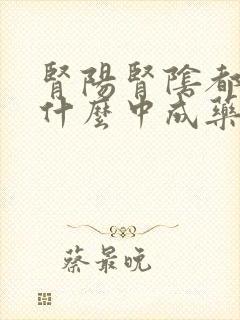 腎陽腎陰都
什麼中成藥
蔡最晚